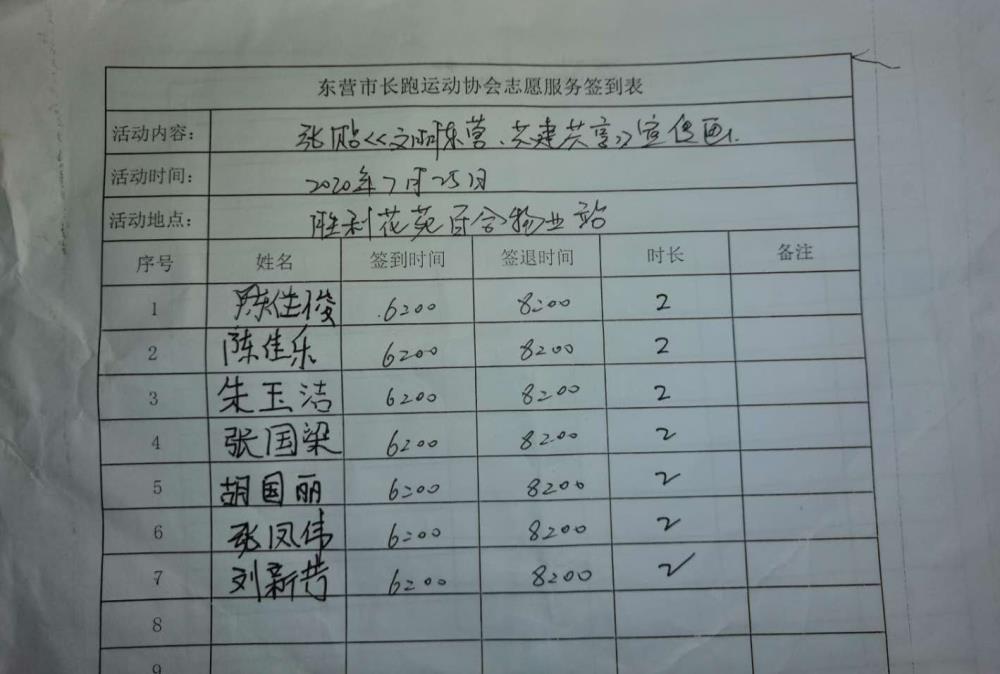 东营市长跑运动协会志愿服务签到表
活动内容： 张贴《文明东营、共建共享》宣传画。
活动时间： 2020年7月25日
活动地点： 胜利花苑百合物业站
序号 姓名 签到时间 签退时间 时长 备注
1 陈佳俊 6:00 8:00 2
2 陈佳乐 6:00 8:00 2
3 朱玉洁 6:00 8:00 2
4 张国梁 6:00 8:00 2
5 胡国丽 6:00 8:00 2
6 张凤伟 6:00 8:00 2
7 刘新芳 6:00 8:00 2
8
9